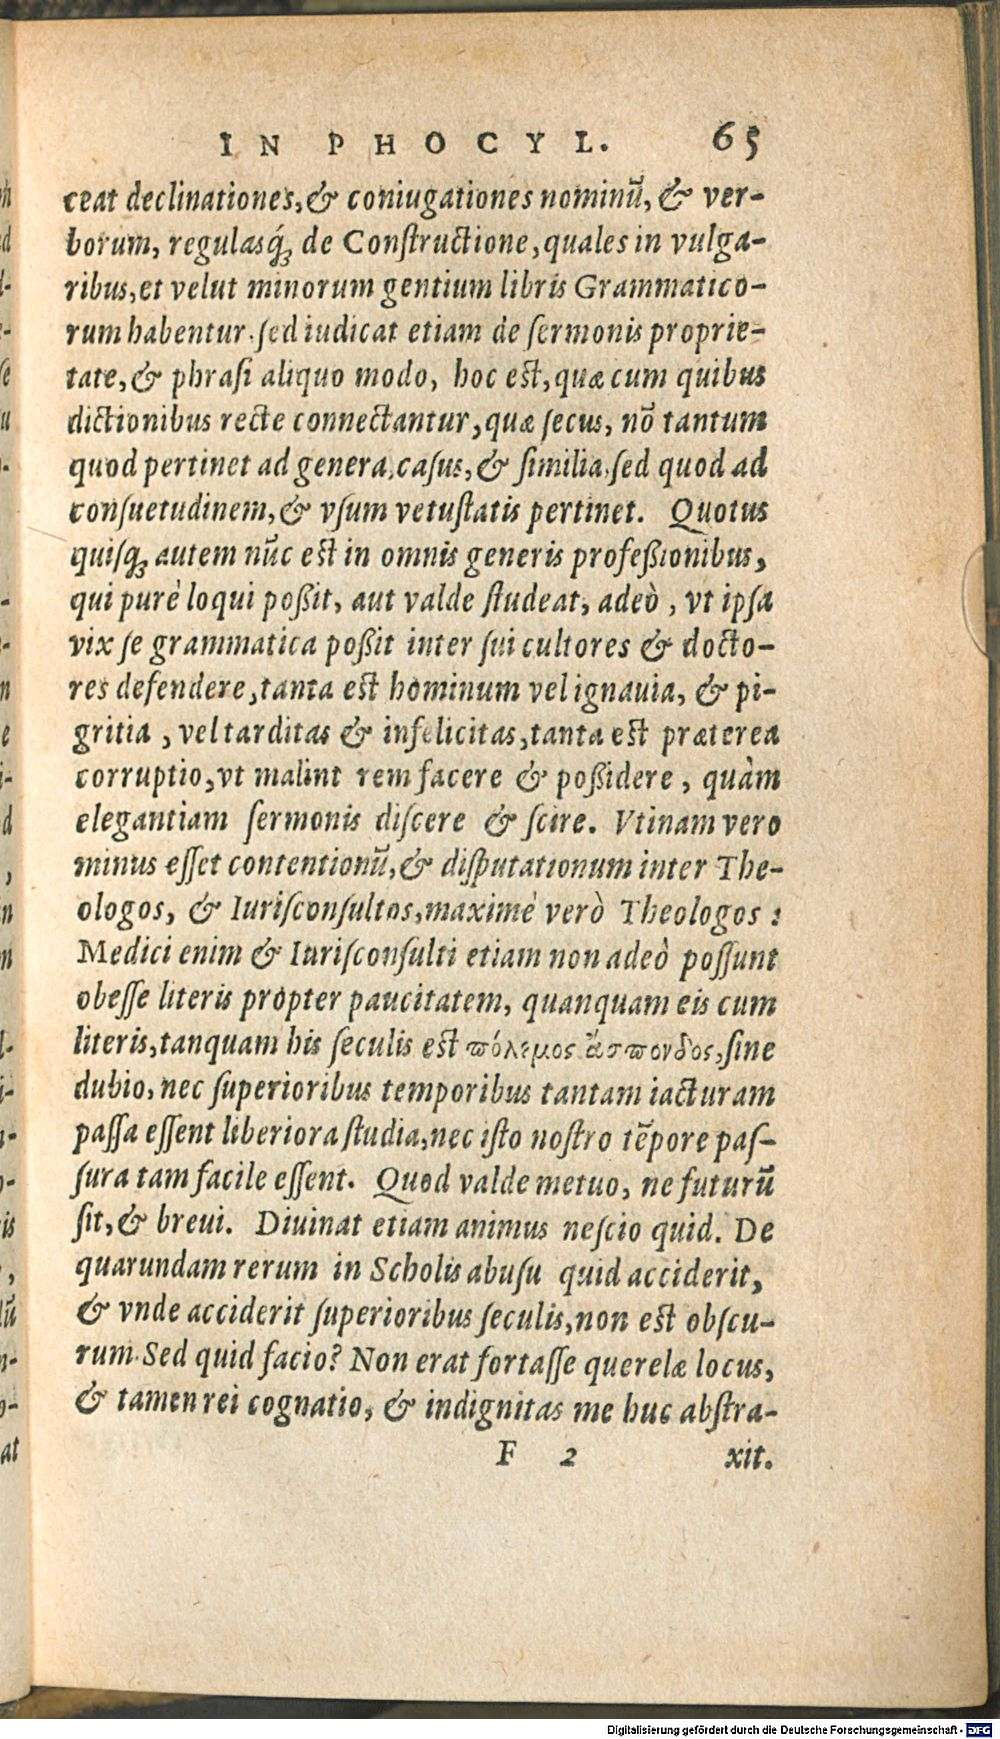 IN PHOCYL. 65
ceat declinationes, & coniugationes nominū, & ver-
borum, regulasq́ꝫ de Constructione, quales in vulga-
ribus, et velut minorum gentium libris Grammatico-
rum habentur. sed iudicat etiam de sermonis proprie-
tate, & phrasi aliquo modo, hoc est, quæ cum quibus
dictionibus recte connectantur, quæ secus, nō tantum
quod pertinet ad genera, casus, & similia, sed quod ad
consuetudinem, & vsum vetustatis pertinet. Quotus
quisqꝫ autem nūc est in omnis generis professionibus,
qui purè loqui possit, aut valde studeat, adeò, vt ipsa
vix se grammatica possit inter sui cultores & docto-
res defendere, tanta est hominum vel ignauia, & pi-
gritia, vel tarditas & infelicitas, tanta est præterea
corruptio, vt malint rem facere & possidere, quàm
elegantiam sermonis discere & scire. Vtinam vero
minus esset contentionū, & disputationum inter The-
ologos, & Iurisconsultos, maximè verò Theologos:
Medici enim & Iurisconsulti etiam non adeò possunt
obesse literis propter paucitatem, quanquam eis cum
literis, tanquam his seculis est πόλεμος ἄσπονδος, sine
dubio, nec superioribus temporibus tantam iacturam
passa essent liberiora studia, nec isto nostro tēpore pas-
sura tam facile essent. Quod valde metuo, ne futurū
sit, & breui. Diuinat etiam animus nescio quid. De
quarundam rerum in Scholis abusu quid acciderit,
& vnde acciderit superioribus seculis, non est obscu-
rum. Sed quid facio? Non erat fortasse querelæ locus,
& tamen rei cognatio, & indignitas me huc abstra-
F 2 xit.
Digitalisierung gefördert durch die Deutsche Forschungsgemeinschaft - DFG